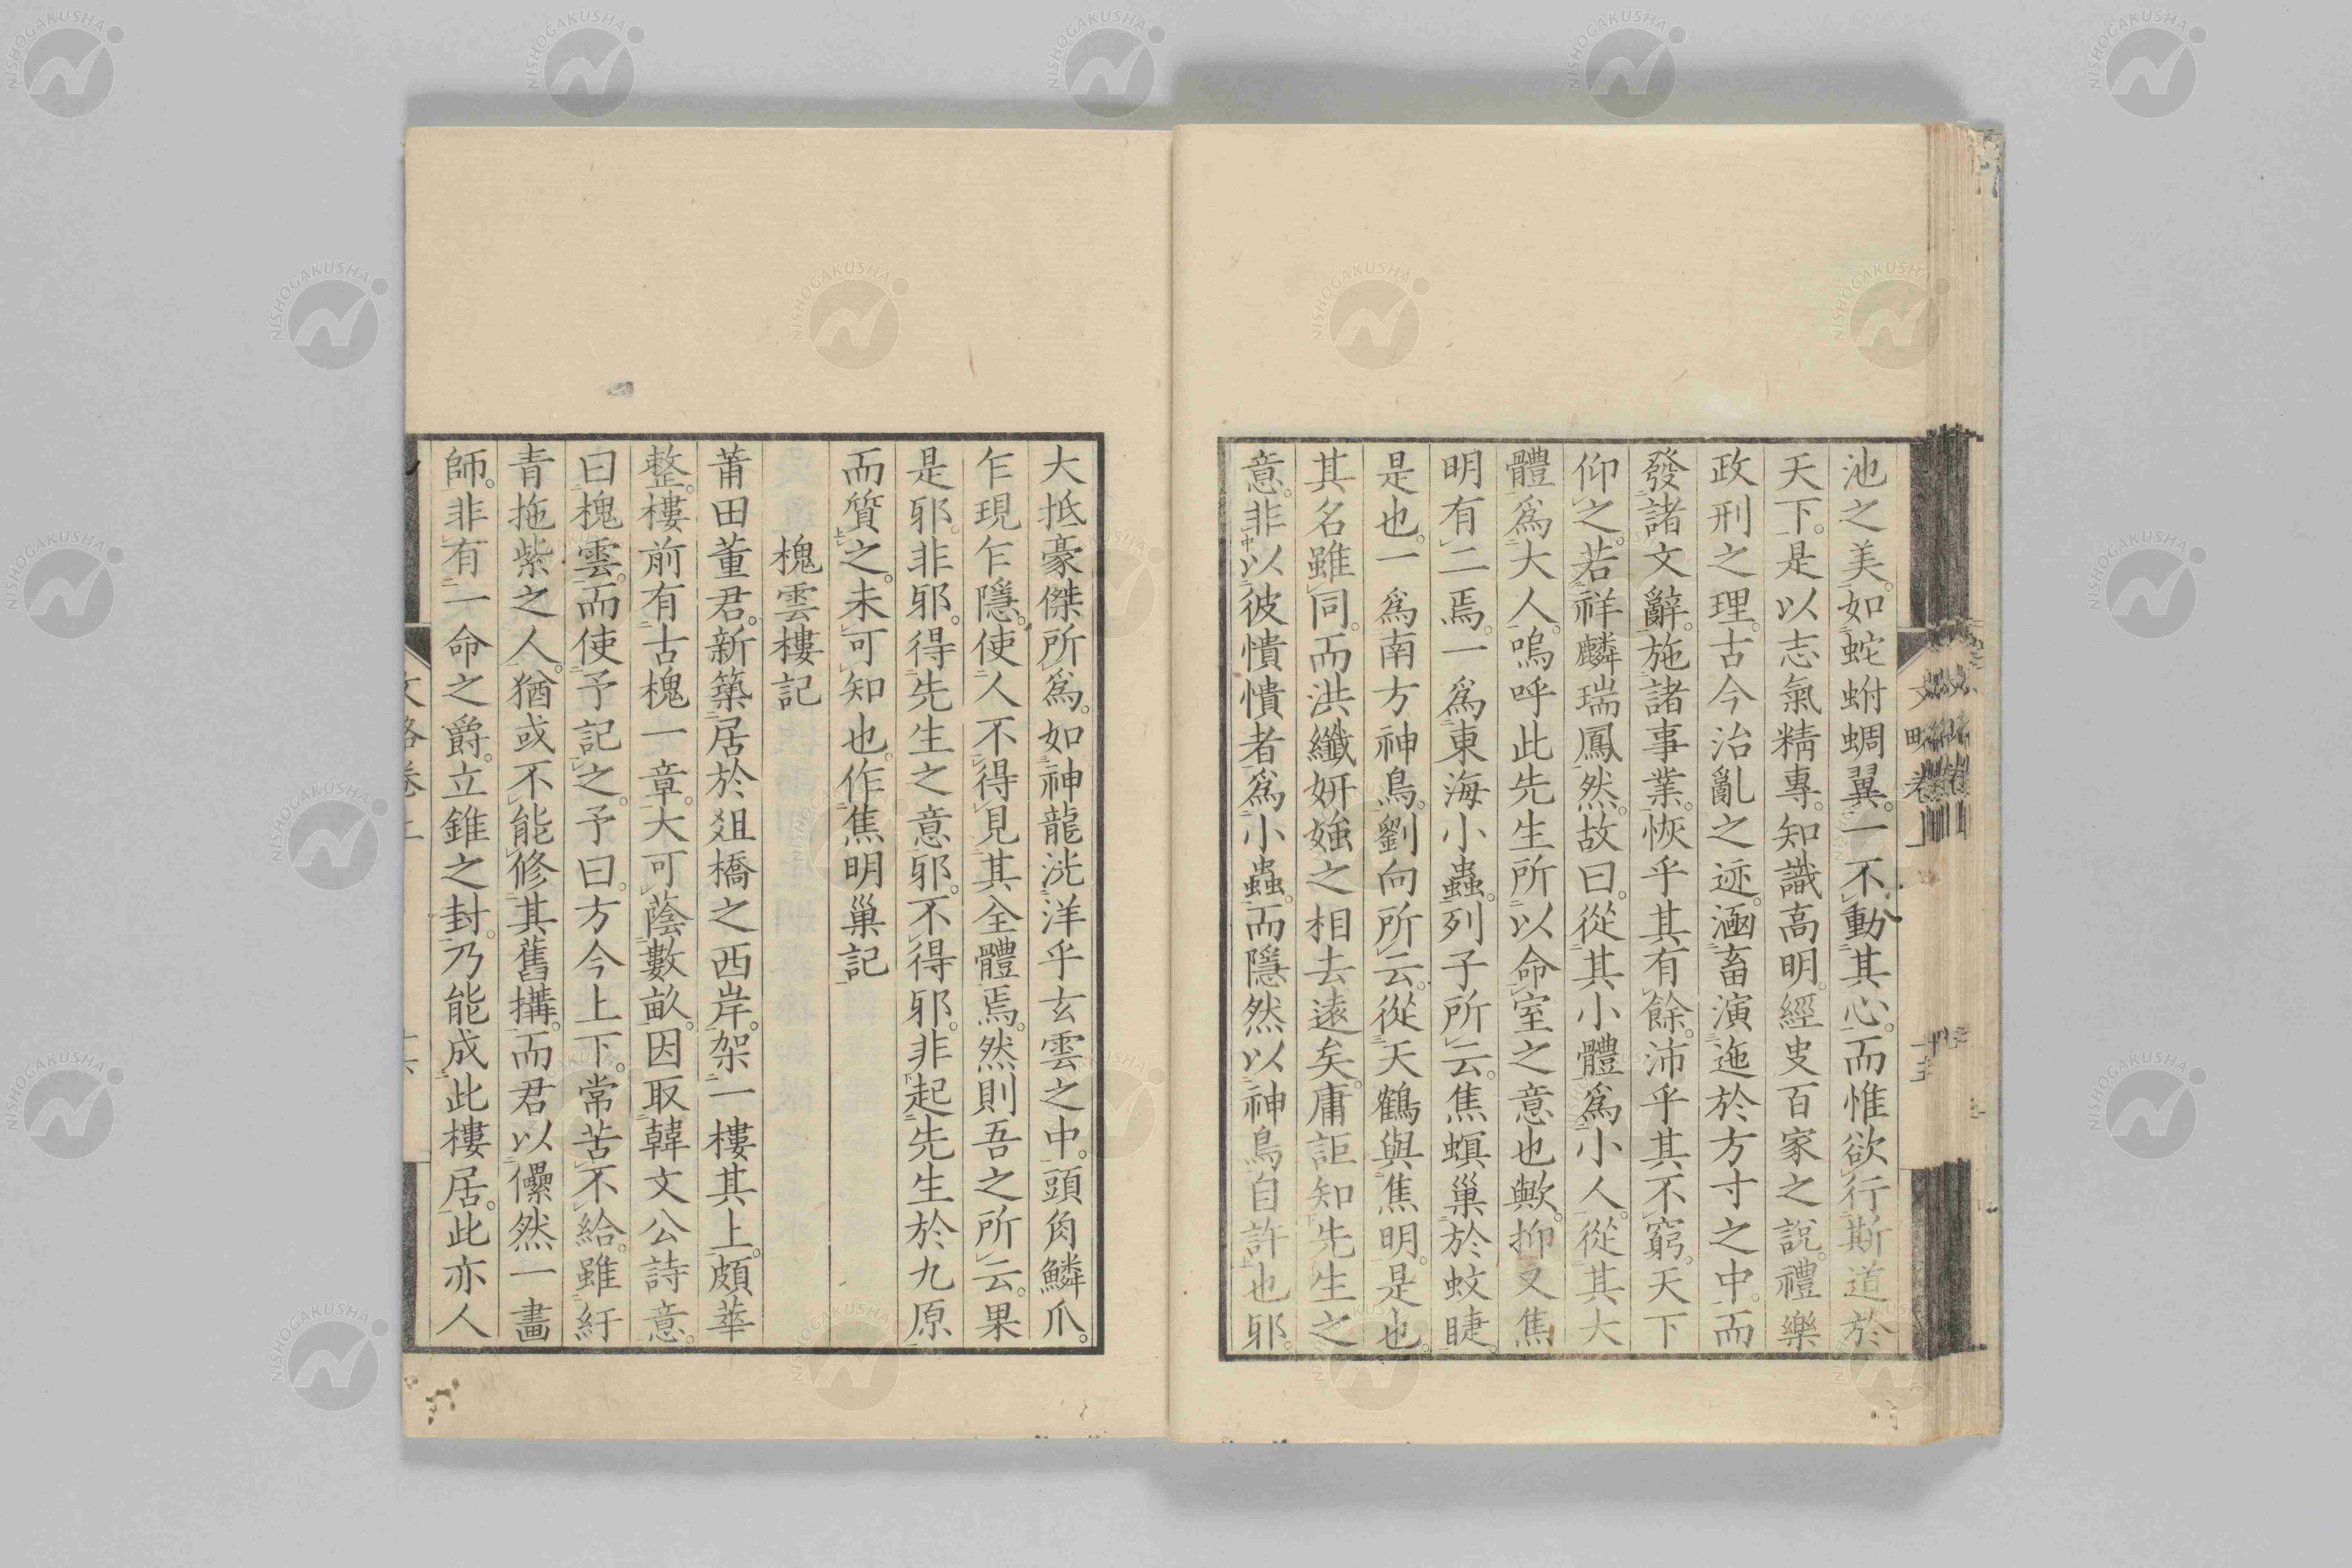 池之美。如蛇蚹蜩翼。一不動其心。而惟欲行斯道於
天下。是以志氣精專。知識高明。經史百家之説。禮樂
政刑之理。古今治亂之迹。涵畜演迤於方寸之中。而
發諸文辭。施諸事業。恢乎其有餘。沛乎其不窮。天下
仰之。若祥麟瑞鳳然。故曰。從其小體爲小人。從其大
體爲大人。嗚呼此先生所以命室之意也歟。抑又焦
明有二焉。一爲東海小蟲。列子所云。焦螟巢於蚊睫。
是也。一爲南方神鳥。劉向所云。從天鶴與焦明。是也。
其名雖同。而洪纖妍媸之相去遠矣。庸詎知先生之
意。非以彼憒憒者爲小蟲。而隱然以神鳥自許也邪。
大抵豪傑所爲。如神龍洸洋乎玄雲之中。頭角鱗爪。
乍現乍隱。使人不得見其全體焉。然則吾之所云。果
是邪。非邪。得先生之意邪。不得邪。非起先生於九原
而質之。未可知也。作焦明巢記
槐雲樓記
莆田董君。新築居於爼橋之西岸。架一樓其上。頗華
整。樓前有古槐一章。大可蔭數畝。因取韓文公詩意。
曰槐雲。而使予記之。予曰。方今上下。常苦不給。雖紆
青拖紫之人。猶或不能修其舊搆。而君以儽然一畵
師。非有一命之爵。立錐之封。乃能成此樓居。此亦人
文略卷上
NISHOGAKUSHA